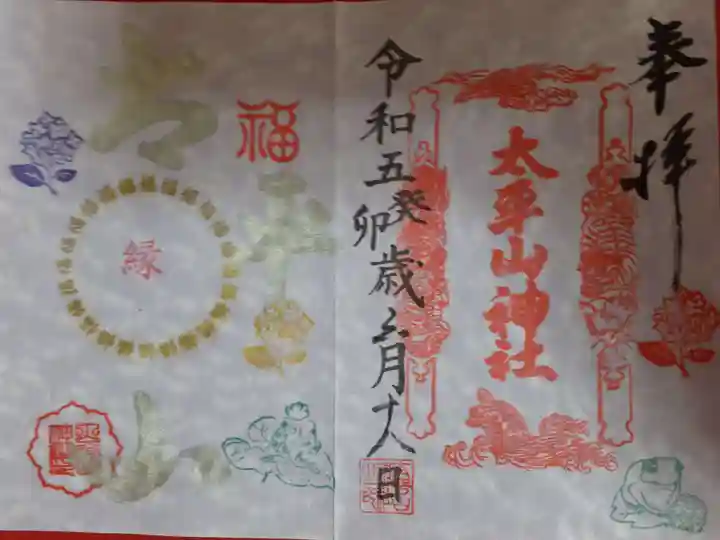 奉拝
太平山神社
令和五癸卯歳六月十八日
福
太平山
縁